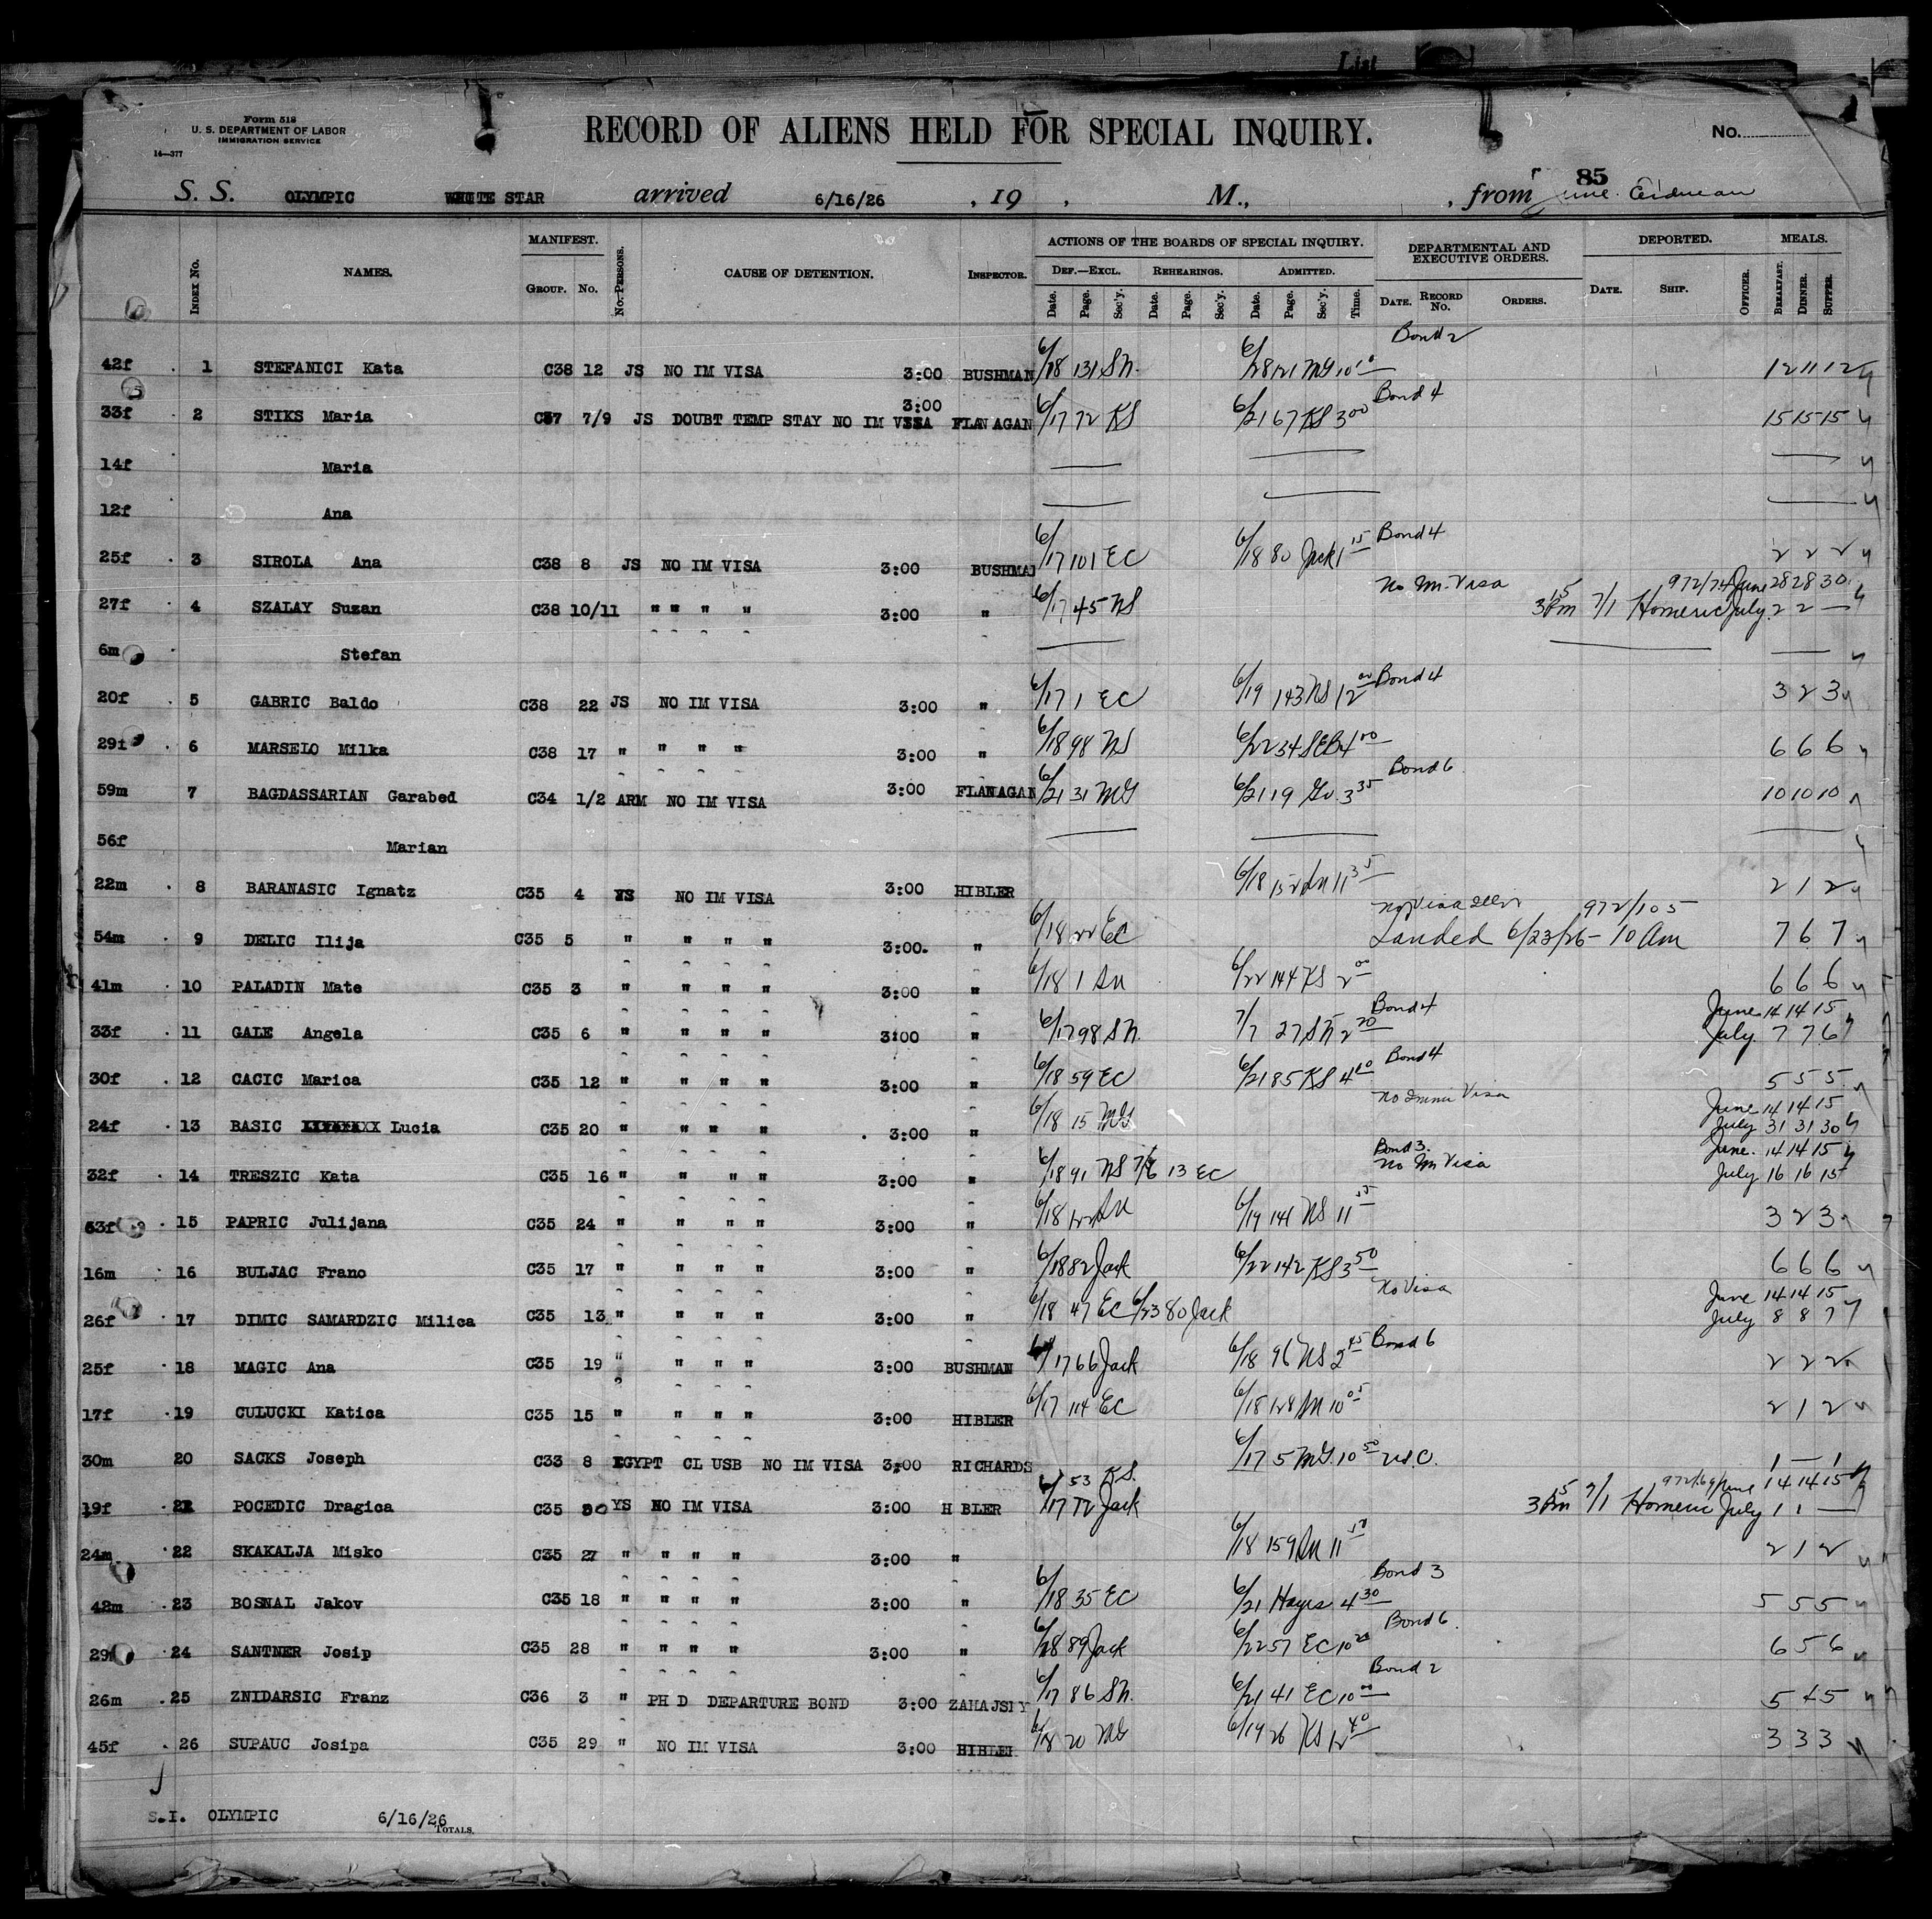 List
Form 518
U. S. DEPARTMENT OF LABOR
IMMIGRATION SERVICE
14—377
RECORD OF ALIENS HELD FOR SPECIAL INQUIRY.
No.
85
S. S. OLYMPIC WHITE STAR arrived 6/16/26 , 19 , M., , from June
INDEX NO. NAMES. MANIFEST. GROUP. NO. NO. PERSONS. CAUSE OF DETENTION. INSPECTOR. ACTIONS OF THE BOARDS OF SPECIAL INQUIRY. DEF.—EXCL. Date. Page. Sec'y. REHEARINGS. Date. Page. Sec'y. ADMITTED. Date. Page. Sec'y. Time. DEPARTMENTAL AND EXECUTIVE ORDERS. DATE. RECORD NO. ORDERS. DEPORTED. DATE. SHIP. OFFICER. MEALS. BREAKFAST. DINNER. SUPPER.
Bond 2
42f 1 STEFANICI Kata C38 12 JS NO IM VISA 3:00 BUSHMAN 6/18 131 SN. 6/28 121 MG 10 12 11 12
Bond 4
33f 2 STIKS Maria C37 7/9 JS DOUBT TEMP STAY NO IM VISA 3:00 FLANAGAN 6/17 72 KS 6/21 67 KS 3 00 15 15 15
14f Maria
12f Ana
Bond 4
25f 3 SIROLA Ana C38 8 JS NO IM VISA 3:00 BUSHMAN 6/17 101 EC 6/18 80 Jack 1 15 2 2 2
No Im. Visa 972/74 June 28 28 30
27f 4 SZALAY Suzan C38 10/11 " " " " 3:00 " 6/17 45 NS 3 15 Pm 7/1 Homeric July 2 2 —
6m Stefan
Bond 4
20f 5 GABRIC Baldo C38 22 JS NO IM VISA 3:00 " 6/17 1 EC 6/19 143 NS 12 00 3 2 3
29f 6 MARSELO Milka C38 17 " " " " 3:00 " 6/18 98 NS 6/22 34 SEB 4 00 6 6 6
Bond 6
59m 7 BAGDASSARIAN Garabed C34 1/2 ARM NO IM VISA 3:00 FLANAGAN 6/21 31 MG 6/21 19 3 35 10 10 10
56f Marian
22m 8 BARANASIC Ignatz C35 4 YS NO IM VISA 3:00 HIBLER 6/18 152 SN 11 35 2 1 2
No Visa 972/105
54m 9 DELIC Ilija C35 5 " " " " 3:00. " 6/18 22 EC Landed 6/23/26 - 10 Am 7 6 7
41m 10 PALADIN Mate C35 3 " " " " 3:00 " 6/18 1 SN 6/22 144 KS 2 00 6 6 6
Bond 4 June 14 14 15
33f 11 GALE Angela C35 6 " " " " 3:00 " 6/17 98 SN. 7/7 27 SN 2 20 July 7 7 6
Bond 4
30f 12 CACIC Marica C35 12 " " " " 3:00 " 6/18 59 EC 6/21 85 KS 4 5 5 5
No Immi Visa June 14 14 15
24f 13 BASIC Lucia C35 20 " " " " 3:00 " 6/18 15 MG July 31 31 30
Bond 3. June. 14 14 15
32f 14 TRESZIC Kata C35 16 " " " " 3:00 " 6/18 91 NS 7/6 13 EC No Im Visa July 16 16 15
53f 15 PAPRIC Julijana C35 24 " " " " 3:00 " 6/18 122 SN 6/19 141 NS 11 3 2 3
16m 16 BULJAC Frano C35 17 " " " " 3:00 " 6/18 82 Jack 6/22 142 KS 3 50 6 6 6
No Visa June 14 14 15
26f 17 DIMIC SAMARDZIC Milica C35 13 " " " " 3:00 " 6/18 47 EC 6/23 80 Jack July 8 8 7
Bond 6
25f 18 MAGIC Ana C35 19 " " " " 3:00 BUSHMAN 6/17 66 Jack 6/18 96 NS 2 45 2 2 2
17f 19 CULUCKI Katica C35 15 " " " " 3:00 HIBLER 6/17 114 EC 6/18 128 SN 10 05 2 1 2
30m 20 SACKS Joseph C33 8 EGYPT CL USB NO IM VISA 3:00 RICHARDS 6/17 5 MG. 10 50 U.S.C. 1 — 1
53 KS. 972/69 June 14 14 15
19f 21 POCEDIC Dragica C35 30 YS NO IM VISA 3:00 H BLER 6/17 72 Jack 3 15 Pm 7/1 Homeric July 1 1 —
24m 22 SKAKALJA Misko C35 27 " " " " 3:00 " 6/18 159 SN 11 2 1 2
Bond 3
42m 23 BOSNAL Jakov C35 18 " " " " 3:00 " 6/18 35 EC 6/21 Hayes 4 30 5 5 5
Bond 6.
29f 24 SANTNER Josip C35 28 " " " " 3:00 " 6/18 89 Jack 6/22 57 EC 10 20 6 5 6
Bond 2
26m 25 ZNIDARSIC Franz C36 3 " PH D DEPARTURE BOND 3:00 ZAMAJSKY 6/17 86 SN. 6/21 41 EC 10 00 5 4 5
45f 26 SUPAUC Josipa C35 29 " NO IM VISA 3:00 HIBLER 6/18 20 MG 6/19 26 KS 12 40 3 3 3
S.I. OLYMPIC 6/16/26
TOTALS.